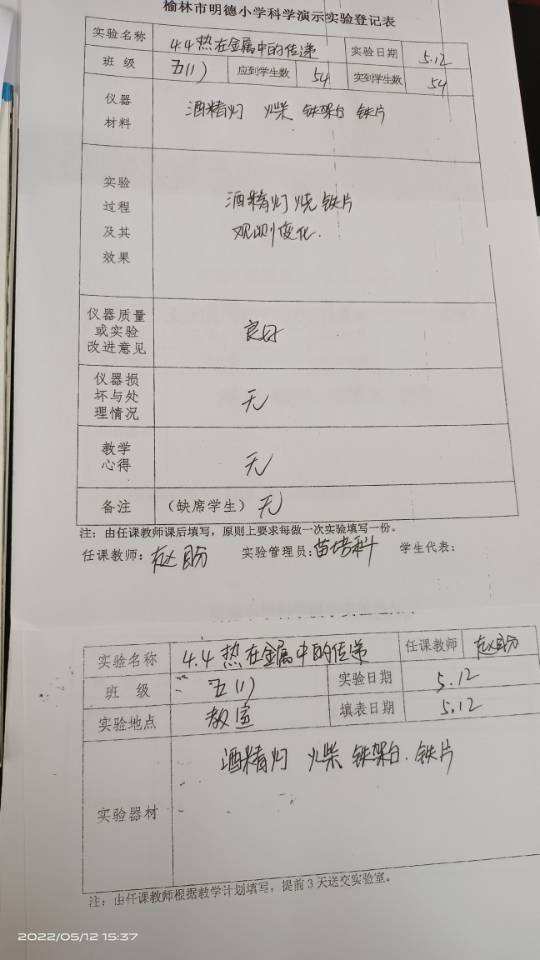 榆林市明德小学科学演示实验登记表
实验名称 4.4热在金属中的传递 实验日期 5.12
班 级 五(1) 应到学生数 54 实到学生数 54
仪器
材料
酒精灯 火柴 铁架台 铁片
实验
过程
及其
效果
酒精灯烧铁片
观测变化.
仪器质量
或实验
改进意见
良好
仪器损
坏与处
理情况
无
教学
心得
无
备注 (缺席学生) 无
注:由任课教师课后填写,原则上要求每做一次实验填写一份。
任课教师: 赵盼 实验管理员:苗培科 学生代表:
实验名称 4.4热在金属中的传递 任课教师 赵盼
班 级 五(1) 实验日期 5.12
实验地点 教室 填表日期 5.12
实验器材 酒精灯 火柴 铁架台. 铁片
注:由任课教师根据教学计划填写,提前3天送交实验室。
2022/05/12 15:37